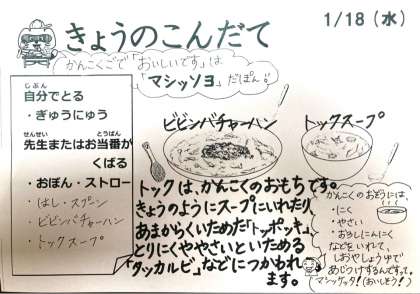 1/18（水）
きょうのこんだて
かんこくごで「おいしいです」は
「マシッソヨ」だぽん！
じぶん
自分でとる
・ぎゅうにゅう
せんせい とうばん
先生またはお当番が
くばる
・おぼん・ストロー
・はし・スプーン
・ビビンバチャーハン
・トックスープ
ビビンバチャーハン
トックスープ
トックは、かんこくのおもちです。
きょうのようにスープにいれたり
あまからくいためた「トッポッキ」
とりにくややさいといためる
「タッカルビ」などにつかわれ
ます。
かんこくのおぞうには、
・にく
・やさい
・おろしにんにく
などをいれて、
しおやしょうゆで
あじつけするんですって。
マシケッタ！（おいしそう！）